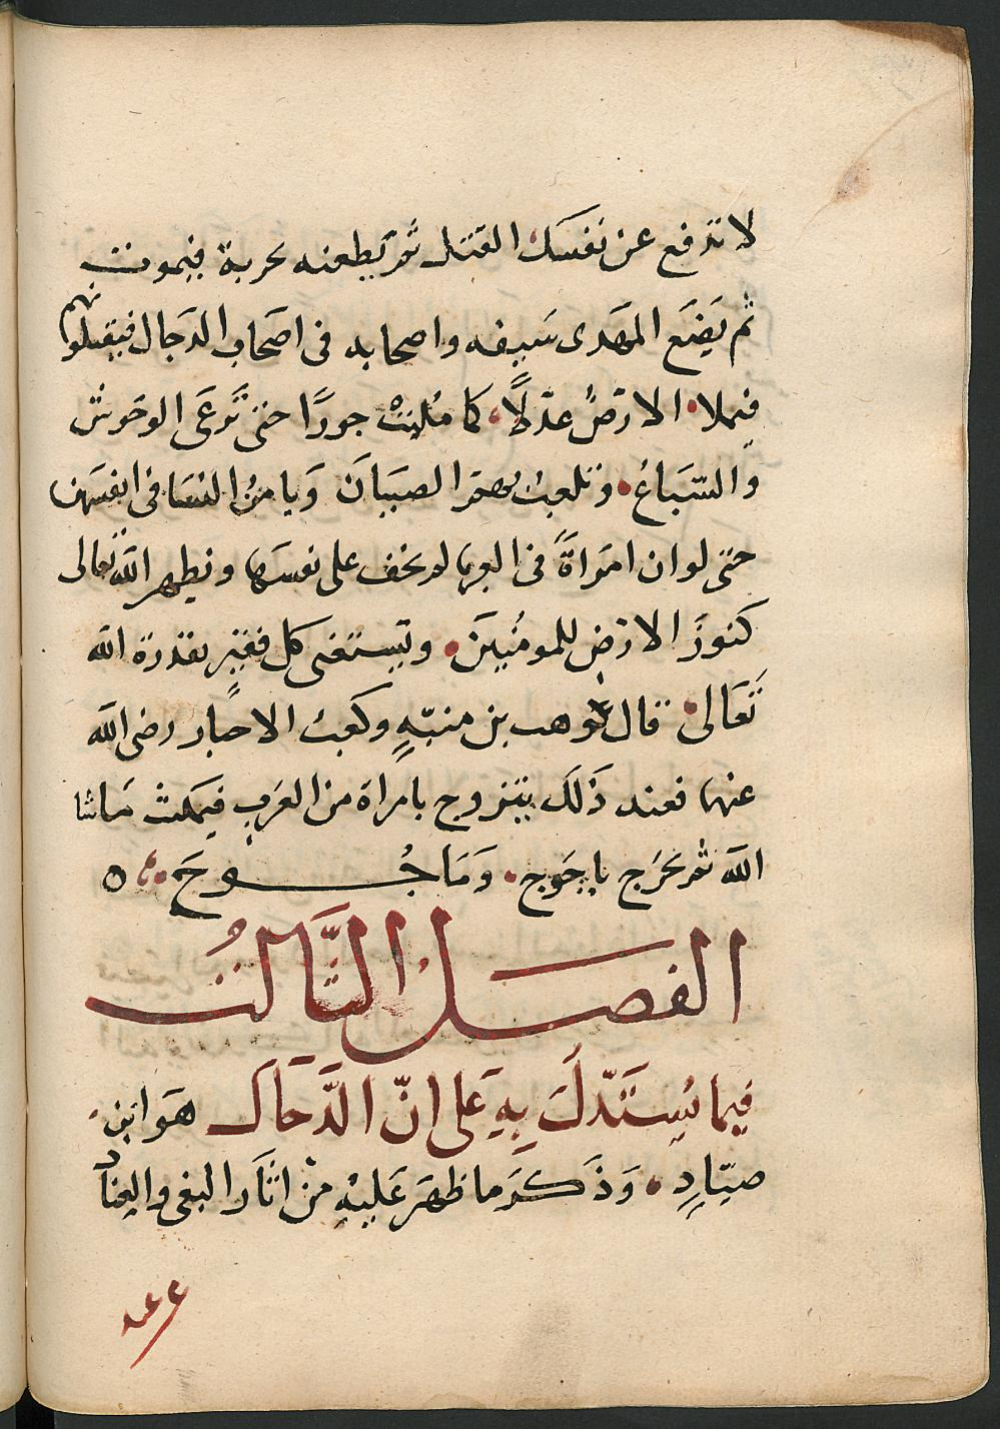 لا تدفع عن نفسك القتل ثم يطعنه بحربة فيموت
ثم يَضَع المهَدى سَيفه واصحابه فى اصحَاب الدَجال فيقتلونهم
فيملاء الارضُ عدلًا، كما مُلئتْ جورًا حتى تَرعَى الوحَوش
وَالسّبَاعُ، وتلعبُ بهم الصبيَان وَيامنُ النسَا فى انفسَهن
حتى لو ان امرَاةً فى العرا لم تخف على نفسَها ويظهر الله تعالى
كنوزَ الارض للمومُنينَ، ويَستغنى كل فقيرٍ بقدرة الله
تَعَالى، قال وهب بن منبّهٍ وكعبُ الاحبار رضى الله
عنهما فعند ذَلكَ يتزوج بامراة من العَرب فيمكث مَا شا
الله ثم يخرَج ياجَوج، وَمَاجُوجَ، ه
الفصَل الثَّالثُ
فيما يُستَدّلَ بِهِ عَلى انّ الدَّجَال هوَ ابن
صيّادٍ، وَذَكرَ ما ظهَرَ عَليهِ منْ اثَار البغى والعِناد